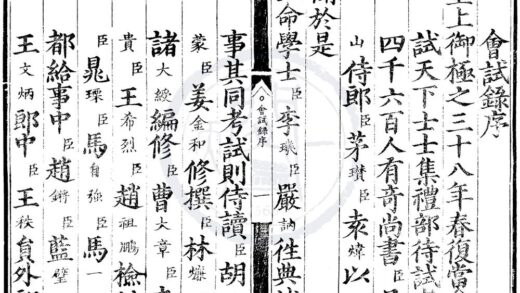 會試錄序
皇上御極之三十八年春復當
試天下士士集禮部待試
四千六百人有奇尚書臣
山侍郎臣茅瓚臣袁煒以
聞於是
命學士臣李璣臣嚴訥徃典
會試錄序
一
事其同考試則侍讀臣胡
蒙臣姜金和修撰臣林爌臣
諸大綬編修臣曹大章臣
貴臣王希烈臣趙祖鵬檢
臣晁瑮臣馬自強臣馬一
都給事中臣趙鏘臣藍璧
王文炳郎中臣王秩員外